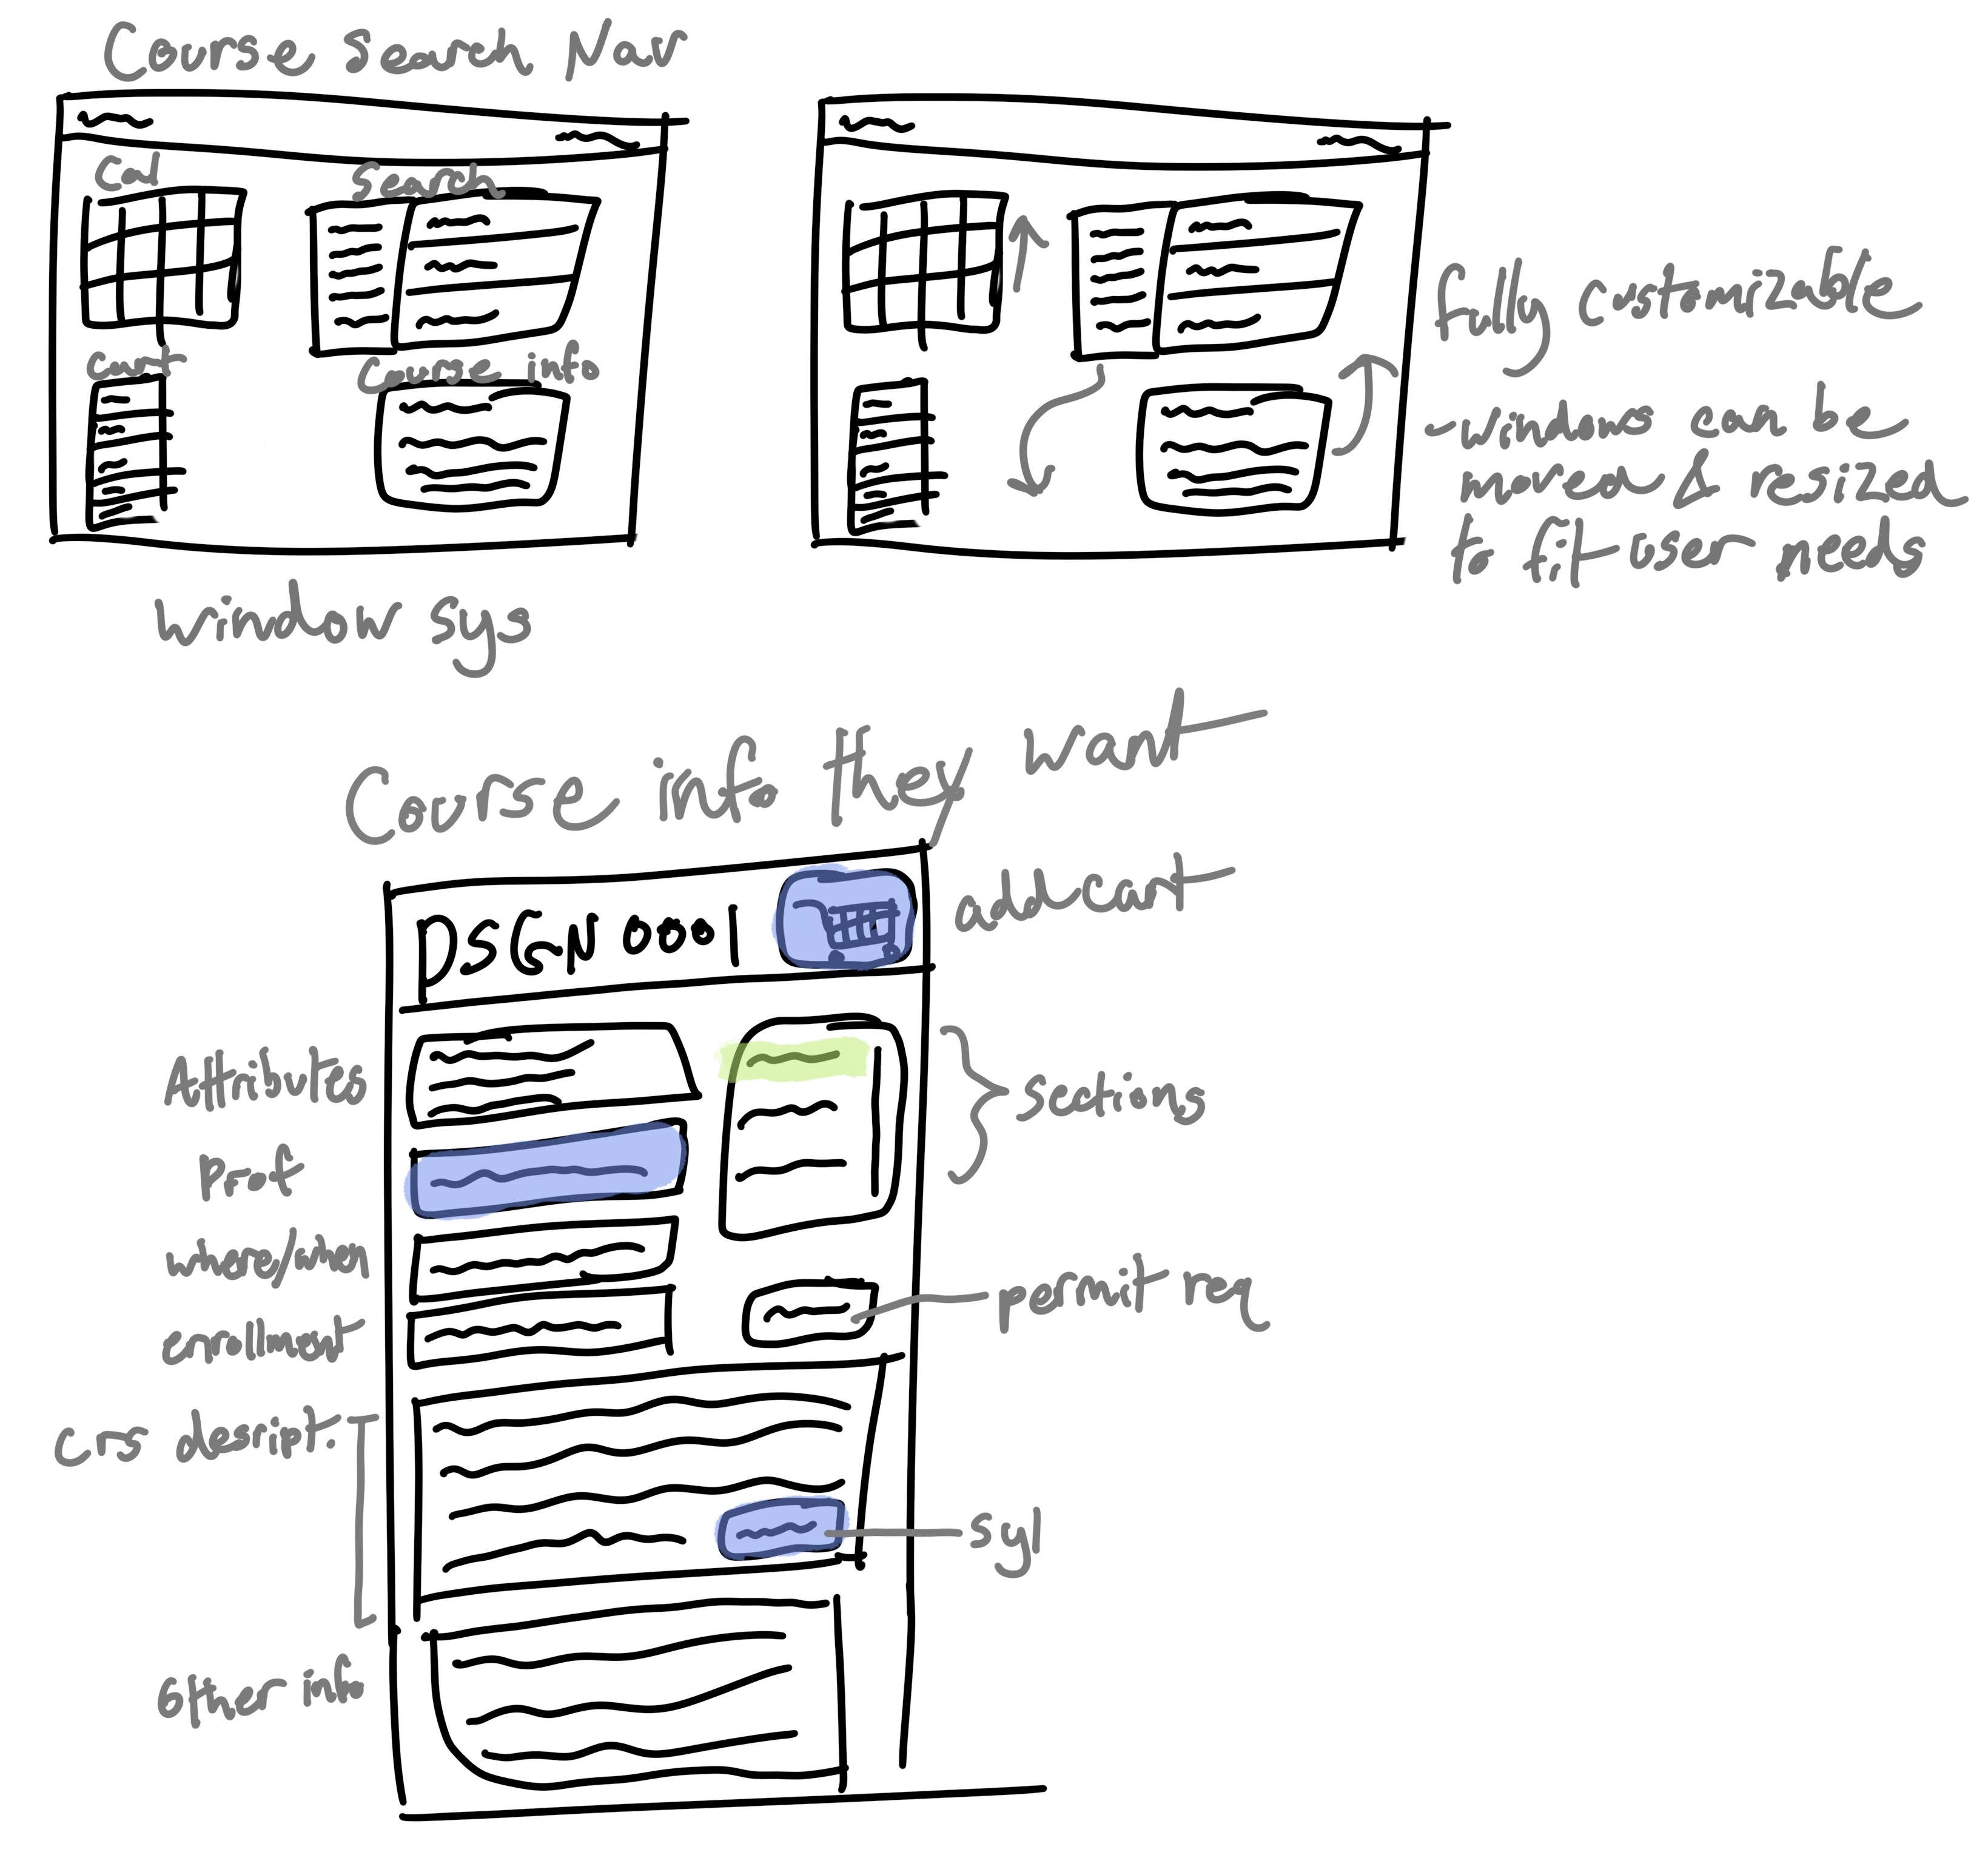 Course Search Nav
Cal
Search
Cart
Course info
Window sys
fully customizable
- windows can be
moved & resized
to fit user needs
Course info they want
DSGN 0001
add cart
Attributes
Prof
where/when
enrollment
crs desript.
Other info
sections
permit req
syl